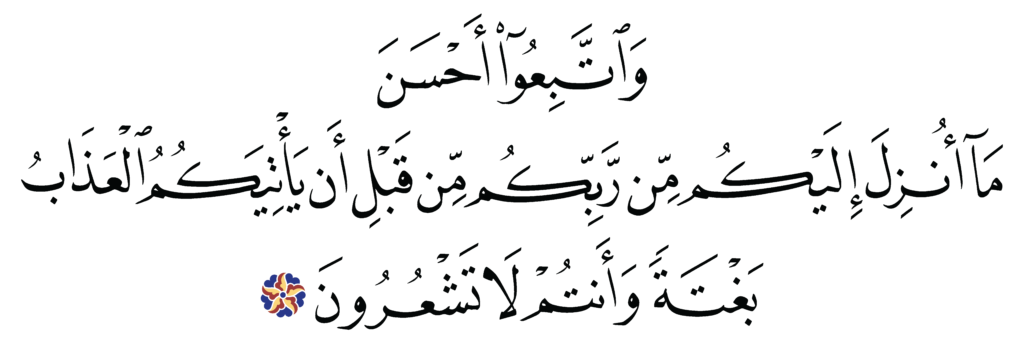 وَٱتَّبِعُوٓا۟ أَحْسَنَ
مَآ أُنزِلَ إِلَيْكُم مِّن رَّبِّكُم مِّن قَبْلِ أَن يَأْتِيَكُمُ ٱلْعَذَابُ
بَغْتَةً وَأَنتُمْ لَا تَشْعُرُونَ